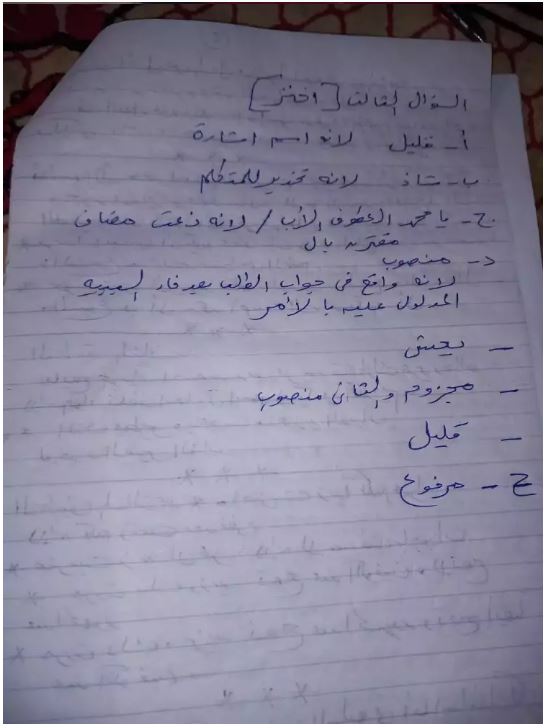 السؤال الثالث [اختر]
أ- قليل لانه اسم اشارة
ب- شاذ لانه تحذير للمتكلم
ج- يا محمد العطوف الأب / لانه نعت مضاف
مقترن بال
د- منصوب
لانه واقع في جواب الطلب بعد فاء السببيه
المدلول عليه بالأمر
-
- مجزوم والثاني منصوب
- قليل
ح - مرفوع